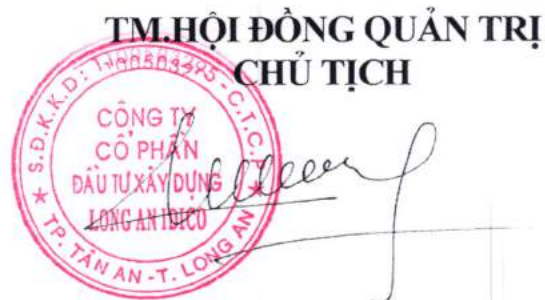 TM.HỘI ĐỒNG QUẢN TRỊ
CHỦ TỊCH
S.Đ.K.K.D:
-C.T.C.P
CÔNG TY
CỔ PHẦN
ĐẦU TƯ XÂY DỰNG
LONG AN IDICO
TP. TÂN AN -T. LONG AN